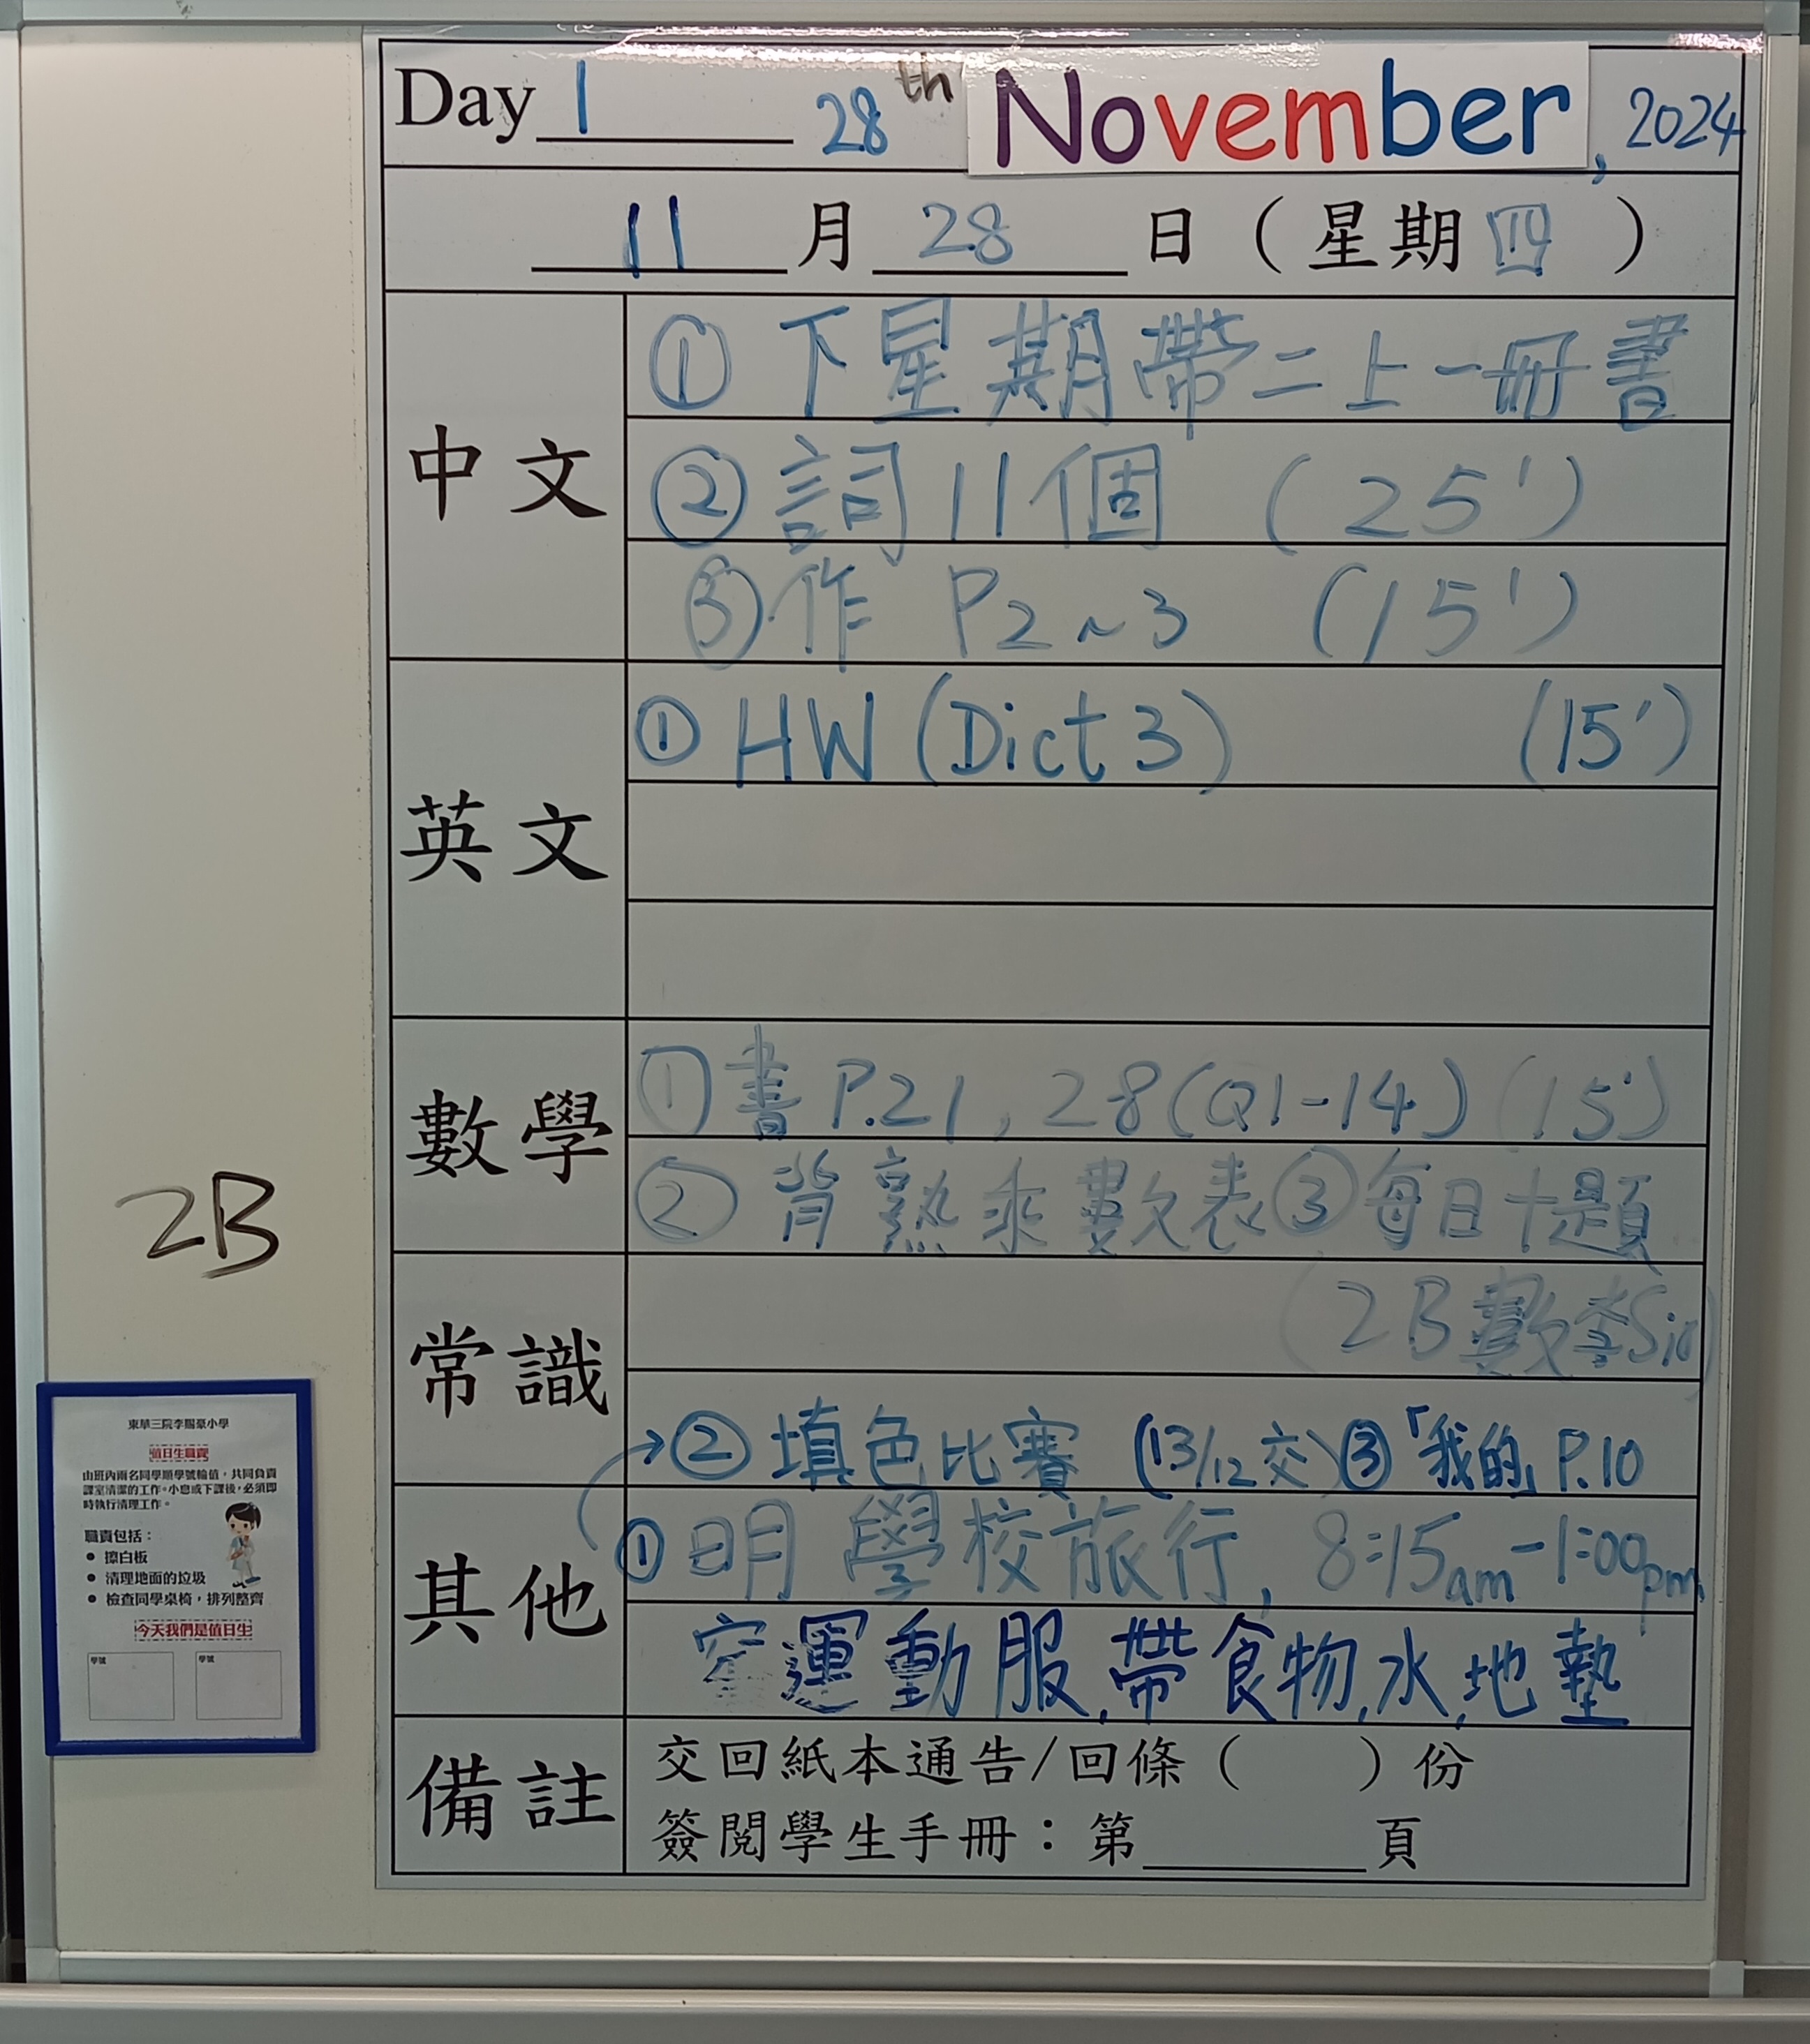 Day 1 28th November, 2024
11月28日(星期四)
中文
① 下星期帶二上一冊書
② 詞11個 (25')
③ 作 P2~3 (15')
英文
① HW (Dict 3) (15')
數學
① 書 P.21, 28(Q1-14) (15')
② 背熟乘數表 ③ 每日十題
(2B數李Sir)
常識
→② 填色比賽 (13/12交) ③「我的」P.10
其他
① 明學校旅行, 8:15am-1:00pm,
穿運動服,帶食物,水,地墊
備註
交回紙本通告/回條( )份
簽閱學生手冊:第______頁
2B
東華三院李賜豪小學
值日生職責
由班內兩名同學順學號輪值,共同負責
課室清潔的工作。小息或下課後,必須即
時執行清理工作。
職責包括:
• 擦白板
• 清理地面的垃圾
• 檢查同學桌椅,排列整齊
今天我們是值日生
學號 學號